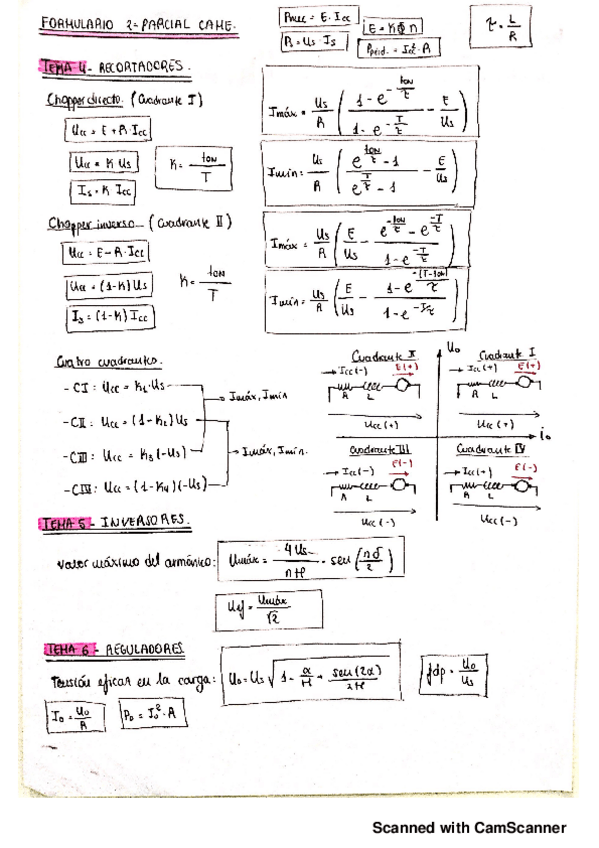 FORMULARIO 2º PARCIAL CAME.
Pmec = E · Icc
E = KΦn
Ps = Us · Is
Pperd. = Icc² · R
τ = L/R
TEMA 4 - RECORTADORES.
Chopper directo. (Cuadrante I)
Ucc = E + R · Icc
Ucc = K Us
K = ton/T
Is = K Icc
Imáx = Us/R ( (1 - e^(-ton/τ))/(1 - e^(-T/τ)) - E/Us )
Imín = Us/R ( (e^(ton/τ) - 1)/(e^(T/τ) - 1) - E/Us )
Chopper inverso - (Cuadrante II)
Ucc = E - R · Icc
Ucc = (1-K) Us
K = ton/T
Is = (1-K) Icc
Imáx = Us/R ( E/Us - (e^(-ton/τ) - e^(-T/τ))/(1 - e^(-T/τ)) )
Imín = Us/R ( E/Us - (1 - e^(-(T-ton)/τ))/(1 - e^(-T/τ)) )
Cuatro cuadrantes.
- CI: Ucc = K1 · Us
Imáx, Imín
- CII: Ucc = (1-K2) Us
- CIII: Ucc = K3 (-Us)
Imáx, Imín.
- CIV: Ucc = (1-K4)(-Us)
Uo
io
Cuadrante II
Icc (-)
E(+)
R L
Ucc (+)
Cuadrante I
Icc (+)
E(+)
R L
Ucc (+)
Cuadrante III
Icc (-)
E(-)
R L
Ucc (-)
Cuadrante IV
Icc (+)
E(-)
R L
Ucc (-)
TEMA 5 - INVERSORES.
Valor máximo del armónico: Umáx = 4Us/nπ · sen (nδ/2)
Uef = Umáx/√2
TEMA 6 - REGULADORES
Tensión eficaz en la carga: Uo = Us √(1 - α/π + sen(2α)/2π)
fdp = Uo/Us
Io = Uo/R
Po = Io² · R
Scanned with CamScanner